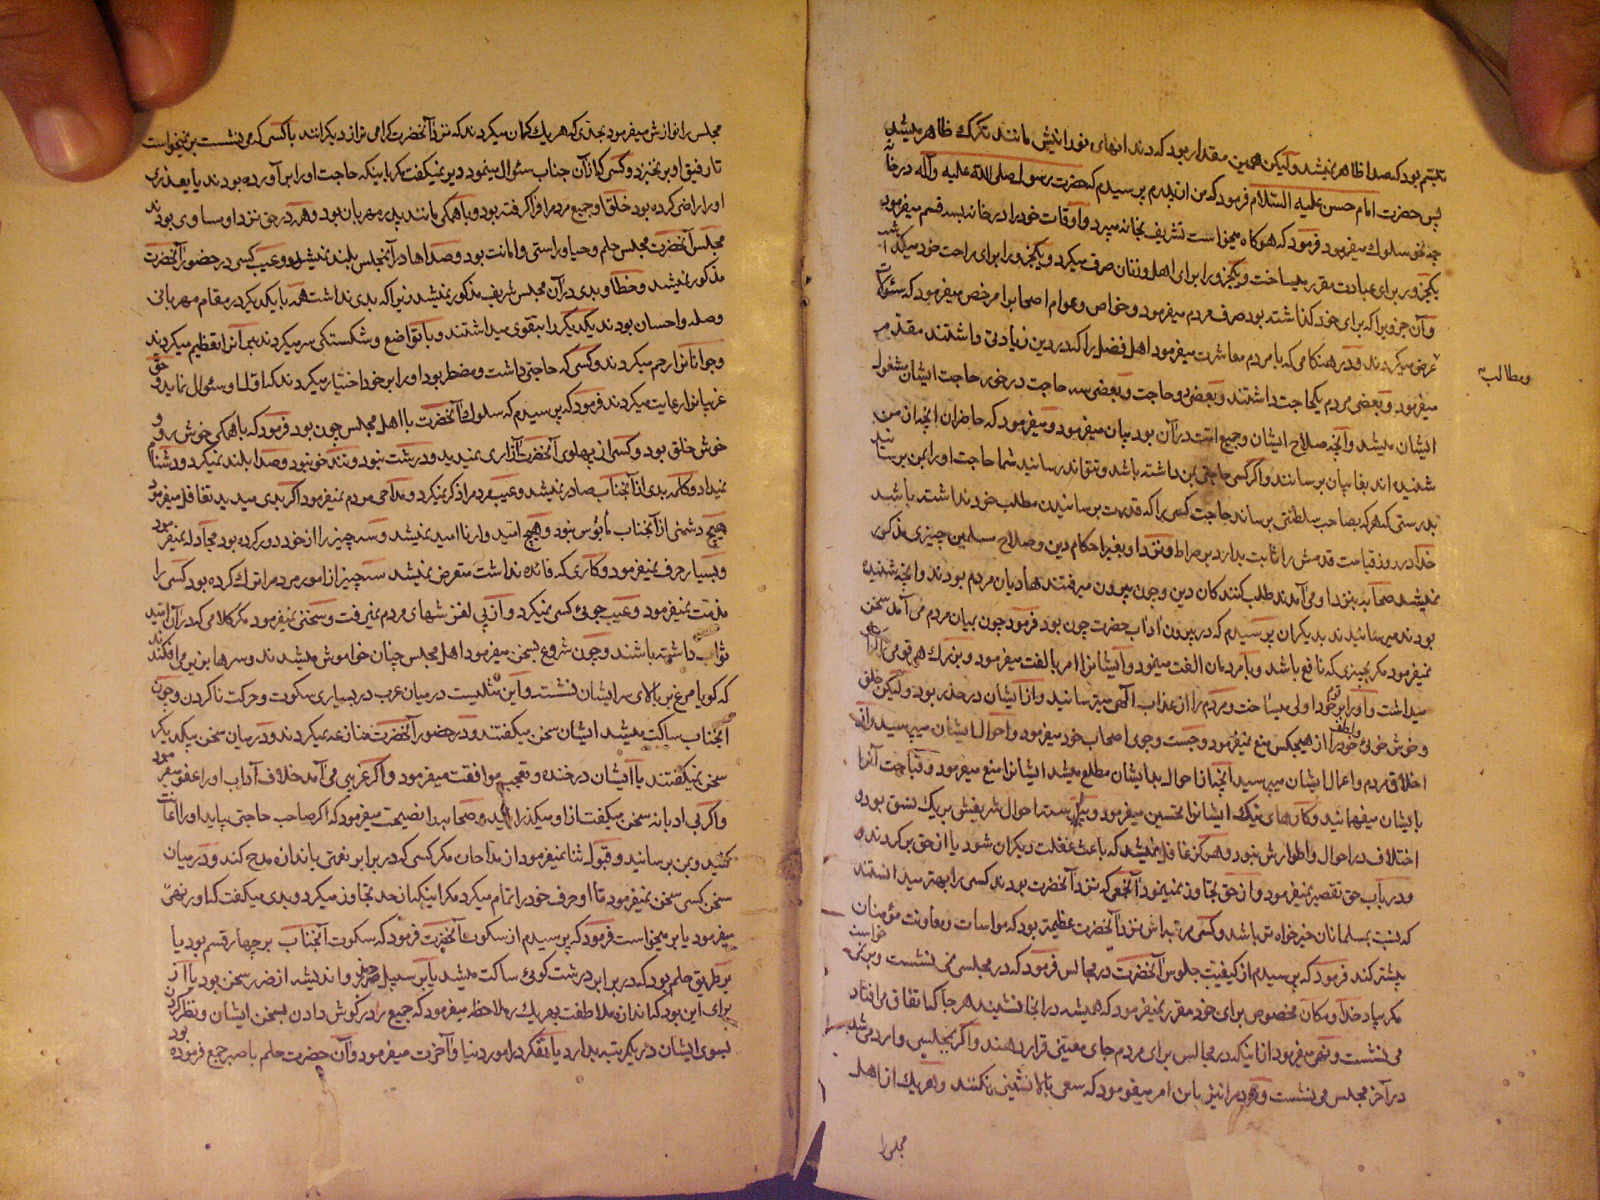 تبسّم بود که صدا ظاهر نمیشد ولیکن همین مقدار بود که دندانهای نورانیش مانند تکرک ظاهر میشد
پس حضرت امام حسن علیه السّلام فرمود که من از پدرم پرسیدم که حضرت رسول صلی الله علیه وآله در خانه
چه نحو سلوک میفرمود فرمود که هرکاه میخواست تشریف بخانه میبرد و اوقات خود را در خانه بسه قسم میفرمود
یکجزو برای عبادت مقرر میساخت و یکجزو را برای اهل و زنان صرف میکرد و یکجزو را برای راحت خود میکذاشت
و آن جزویرا که برای خود کذاشته بود صرف مردم میفرمود و خواص و عوام اصحابرا مرخص میفرمود که سئوال
عرض میکردند و در هنکامی که با مردم معاشرت میفرمود اهل فضل را که در دین زیادتی داشتند مقدم
ومطالب
میفرمود و بعضی مردم یکحاجت داشتند و بعضی دو حاجت و بعضی سه حاجت در خور حاجت ایشان مشغول
ایشان میشد و آنچه صلاح ایشان و جمیع امت در آن بود بیان میفرمود و میفرمود که حاضران آنچه از من
شنیده اند بغایبان برسانند و اکر کسی حاجتی بمن داشته باشد و نتواند رسانید شما حاجت او را بمن برسانید
بدرستی که هرکه بصاحب سلطنتی برساند حاجت کسی را که قدرت برسانیدن مطلب خود نداشته باشد
خدا در روز قیامت قدمش را ثابت بدارد بر صراط و نزد او بغیر احکام دین و صلاح مسلمین چیزی مذکور
نمیشد صحابه بنزد او می آمدند طلب کنندکان دین و چون بیرون میرفتند هادیان مردم بودند و آنچه شنیده
بودند میرسانیدند بدیکران پرسیدم که در بیرون آداب حضرت چون بود فرمود چون بمیان مردم می آمد سخن
نمیفرمود مکر بچیزی که نافع باشد و با مردمان الفت مینمود و ایشانرا امر بالفت میفرمود و بزرک هر قومی را کرامی
میداشت و او را بر ایشان والی میساخت و مردم را از عذاب الهی میترسانید و از ایشان در حذر بود ولیکن خلق
و خوش خوئی خود را از هیچکس منع نمیفرمود و جست وجوی اصحاب خود میفرمود و احوال ایشان میپرسید و از
اخلاق مردم و اعمال ایشان میپرسید آنچه از احوال بد ایشان مطلع میشد ایشانرا منع میفرمود و قباحت آنرا
بایشان میفهمانید و کارهای نیک ایشانرا تحسین میفرمود و پیوسته احوال شریفش بر یک نسق بود و
اختلاف در احوال و اطوارش نبود و هرکز غافل نمیشد که باعث غفلت دیکران شود یا از حق برکردند و
در باب حق تقصیر نمیفرمود و از حق تجاوز نمینمود آنجمعی که نزد آنحضرت بودند کسی را بهتر میدانستند
که نسبت بمسلمانان خیرخواه تر باشد و کسی مرتبه اش نزد آنحضرت عظیمتر بود که مواسات و معاونت مؤمنان
بیشتر کند فرمود که پرسیدم از کیفیت جلوس آنحضرت در مجالس فرمود که در مجلسی نمی نشست و بر نمیخواست
مکر بیاد خدا و مکان مخصوص برای خود مقرر نمیفرمود که همیشه در انجا نشیند هرجا که اتفاق می افتاد
می نشست و نهی میفرمود از اینکه در مجالس برای مردم جای معینی قرار دهند و اکر بمجلسی وارد میشد
در آخر مجلس می نشست و مردم را نیز باین امر میفرمود که سعی بالا نشینی نکنند و بهر یک از اهل
مجلس را
مجلس را نوازش میفرمود بحدّی که هر یک کمان میکردند که نزد آنحضرت کرامی تر از دیکرانند با کسی که می نشست بر نمیخواست
تا رفیق او برنخیزد و کسی که از آن جناب سئوال مینمود دیو نمیکفت مکر با اینکه حاجت او را بر آورده بودند یا بعذری
او را راضی کرده بود خلق او جمیع مردم را فرا کرفته بود و با همکی مانند پدر مهربان بود و همه در حق نزد او مساوی بودند
مجلس آنحضرت مجلس حلم و حیا و راستی و امانت بود و صداها در آنمجلس بلند نمیشد و عیب کسی در حضور آنحضرت
مذکور نمیشد و خطا و بدی در آن مجلس شریف مذکور نمیشد زیرا که بدی نداشت همه با یکدیکر در مقام مهربانی
و صله و احسان بودند یکدیکر را بتقوی میداشتند و با تواضع و شکستکی سر میکردند پیرانرا تعظیم میکردند
و جوانانرا رحم میکردند و کسی که حاجتی داشت و مضطر بود او را بر خود اختیار میکردند
غریبانرا رعایت میکردند فرمود که پرسیدم که سلوک آنحضرت با اهل مجلس چون بود فرمود که با همکی خوش رو و
خوش خلق بود و کسی از پهلوی آنحضرت آزاری نمیدید و درشت نبود و تند خو نبود و صدا بلند نمیکرد و دشنام
نمیداد و کار بدی از آنجناب صادر نمیشد و عیب مردم را ذکر نمیکرد و مدّاحی مردم نمیفرمود اکر بدی میدید تغافل میفرمود
هیچ دشمنی از آنجناب مأیوس نبود و هیچ امّید وار نا امید نمیشد و سه چیز را از خود دور کرده بود مجادله نمیفرمود
و بسیار حرف نمیفرمود و کاری که فائده نداشت متعرض نمیشد سه چیز از امور مردم را ترک کرده بود کسی را
مذمّت نمیفرمود و عیب جوئی کسی نمیکرد و از پی لغزشهای مردم نمیرفت و سخنی نمیفرمود مکر کلامی که در آن امّید
ثواب داشته باشند و چون شروع بسخن میفرمود اهل مجلس چنان خواموش میشدند و سرها بزیر می افکندند
که کویا مرغ بر بالای سر ایشان نشسته و این مثلیست در میان عرب در بسیاری سکوت و حرکت ناکردن و چون
آنجناب ساکت میشد ایشان سخن میکفتند و در حضور آنحضرت منازعه نمیکردند و در میان سخن یکدیکر
سخن نمیکفتند با ایشان در خنده و تعجّب موافقت میفرمود و اکر غریبی می آمد خلاف آداب او را عفو میفرمود
و اکر بی ادبانه سخن میکفت از او میکذرانید و صحابه را نصیحت میفرمود که اکر صاحب حاجتی بیاید او را اعانت
کنید و بمن برسانید و قبول ثنا نمیفرمود از مدّاحان مکر کسی که در برابر نعمتی باندازه مدح کند و در میان
سخن کسی سخن نمیفرمود تا او حرف خود را تمام میکرد مکر اینکه از حد تجاوز میکرد و بدی میکفت که او را نهی
میفرمود یا بر میخواست فرمود که پرسیدم از سکوت آنحضرت فرمود که سکوت آنجناب بر چهار قسم بود یا
بر طریق حلم بود که در برابر درشت کوئی ساکت میشد یا بر سبیل حذر و اندیشه از ضرر سخن بود یا از
برای این بود که اندازه ملاطفت بهر یک ملاحظه میفرمود که جمیع را در کوش دادن بسخن ایشان و نظر کردن
بسوی ایشان در یکرتبه بدارد یا تفکر در امور دنیا و آخرت میفرمود و آن حضرت حلم با صبر جمع فرموده بود